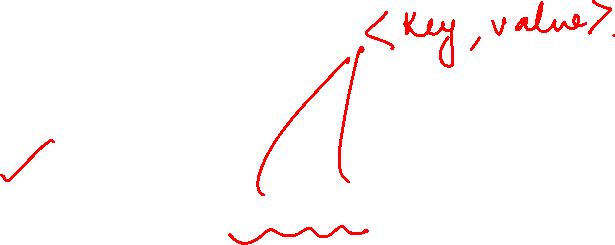 <key, value>.